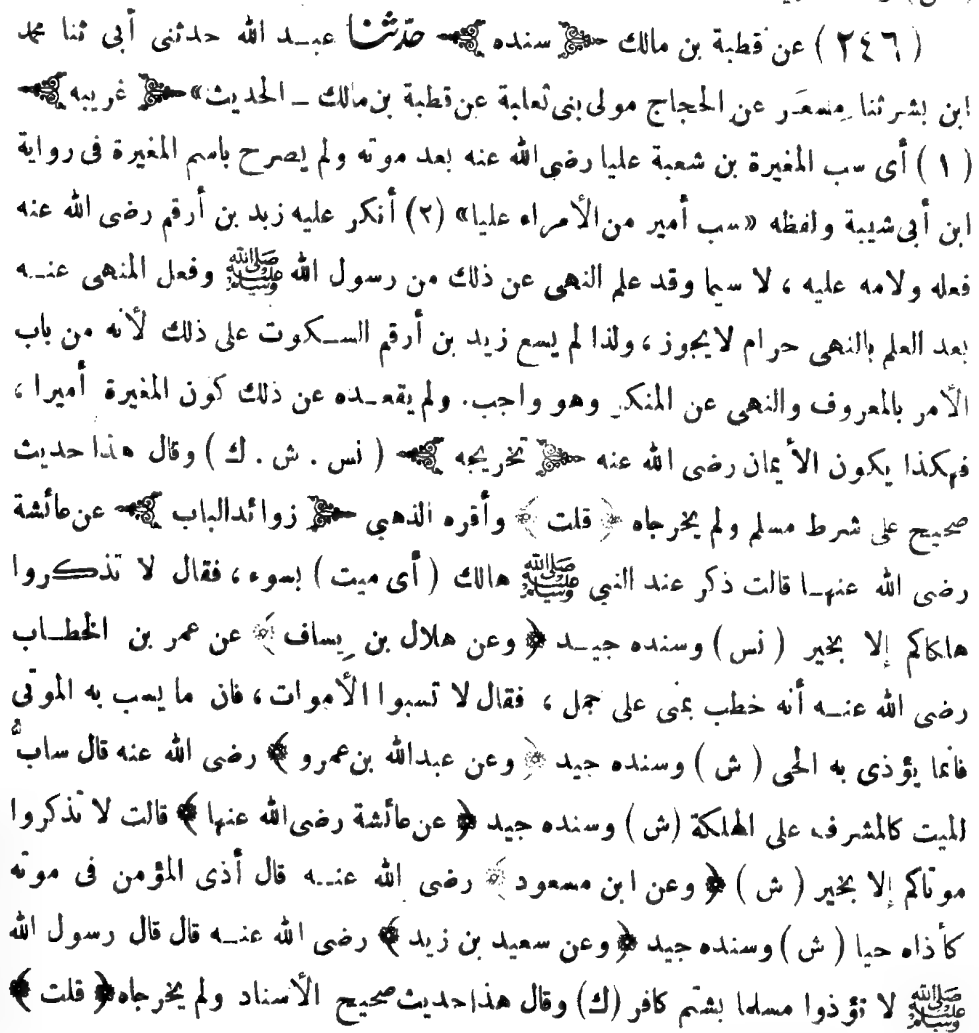 ( ٢٤٦ ) عن قطبة بن مالك ﴿ سنده ﴾ حدّثنا عبد الله حدثنى أبى ثنا محمد
ابن بشر ثنا مِسعَر عن الحجاج مولى بنى ثعلبة عن قطبة بن مالك ـ الحديث» ﴿ غريبه ﴾
( ١ ) أى سب المغيرة بن شعبة عليا رضى الله عنه بعد موته ولم يصرح باسم المغيرة فى رواية
ابن أبى شيبة ولفظه «سب أمير من الأمراء عليا» (٢) أنكر عليه زيد بن أرقم رضى الله عنه
فعله ولامه عليه ، لا سيما وقد علم النهى عن ذلك من رسول الله ﷺ وفعل المنهى عنه
بعد العلم بالنهى حرام لايجوز ، ولذا لم يسع زيد بن أرقم السكوت على ذلك لأنه من باب
الأمر بالمعروف والنهى عن المنكر وهو واجب. ولم يقعده عن ذلك كون المغيرة أميرا ،
فهكذا يكون الأيمان رضى الله عنه ﴿ تخريجه ﴾ ( نس . ش . ك ) وقال هذا حديث
صحيح على شرط مسلم ولم يخرجاه ﴿ قلت ﴾ وأقره الذهبي ﴿ زوائد الباب ﴾ عن عائشة
رضى الله عنها قالت ذكر عند النبي ﷺ هالك ( أى ميت ) بسوء ، فقال لا تذكروا
هلكاكم إلا بخير ( نس ) وسنده جيد ﴿ وعن هلال بن يِساف ﴾ عن عمر بن الخطاب
رضى الله عنه أنه خطب بمنى على جمل ، فقال لا تسبوا الأموات ، فان ما يسب به الموتى
فانما يؤذى به الحى ( ش ) وسنده جيد ﴿ وعن عبدالله بن عمرو ﴾ رضى الله عنه قال سابُّ
الميت كالمشرف على الهلكة (ش ) وسنده جيد ﴿ عن عائشة رضى الله عنها ﴾ قالت لا تذكروا
موتاكم إلا بخير ( ش ) ﴿ وعن ابن مسعود ﴾ رضى الله عنه قال أذى المؤمن فى موته
كأذاه حيا ( ش ) وسنده جيد ﴿ وعن سعيد بن زيد ﴾ رضى الله عنه قال قال رسول الله
ﷺ لا تؤذوا مسلما بشتم كافر (ك) وقال هذا حديث صحيح الأسناد ولم يخرجاه ﴿ قلت ﴾